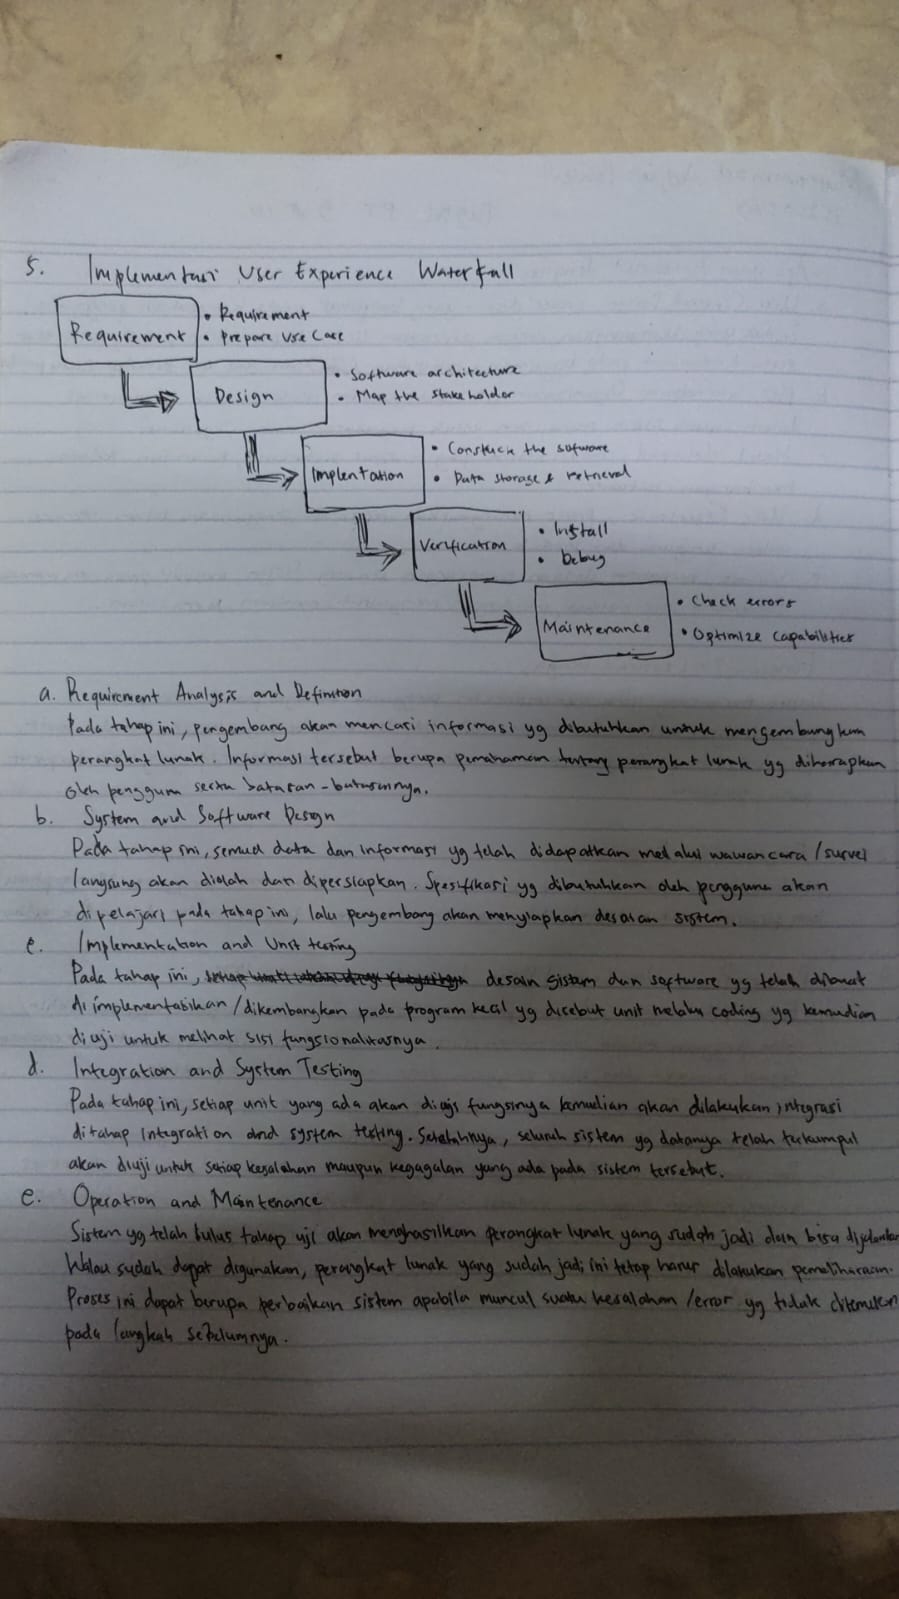 5. Implementasi User Experience Waterfall
Requirement
• Requirement
• Prepare Use Case
Design
• Software architecture
• Map the stake holder
Implentation
• Constuck the sofware
• Data storage & retrieval
Verification
• Install
• Debug
Maintenance
• Check errors
• Optimize capabilities
a. Requirement Analysis and Definition
Pada tahap ini, pengembang akan mencari informasi yg dibutuhkan untuk mengembangkan
perangkat lunak. Informasi tersebut berupa pemahaman tentang perangkat lunak yg diharapkan
oleh pengguna serta batasan-batasannya.
b. System and Software Design
Pada tahap ini, semua data dan informasi yg telah didapatkan melalui wawancara/survei
langsung akan diolah dan dipersiapkan. Spesifikasi yg dibutuhkan oleh pengguna akan
dipelajari pada tahap ini, lalu pengembang akan menyiapkan desain sistem.
c. Implementation and Unit testing
Pada tahap ini, desain sistem dan software yg telah dibuat
di implementasikan/dikembangkan pada program kecil yg disebut unit melalui coding yg kemudian
diuji untuk melihat sisi fungsionalitasnya.
d. Integration and System Testing
Pada tahap ini, setiap unit yang ada akan diuji fungsinya kemudian akan dilakukan integrasi
ditahap Integration and system testing. Setelahnya, seluruh sistem yg datanya telah terkumpul
akan diuji untuk setiap kesalahan maupun kegagalan yang ada pada sistem tersebut.
e. Operation and Maintenance
Sistem yg telah lulus tahap uji akan menghasilkan perangkat lunak yang sudah jadi dan bisa dijalankan
Walau sudah dapat digunakan, perangkat lunak yang sudah jadi ini tetap harus dilakukan pemeliharaan.
Proses ini dapat berupa perbaikan sistem apabila muncul suatu kesalahan/error yg tidak ditemukan
pada langkah sebelumnya.